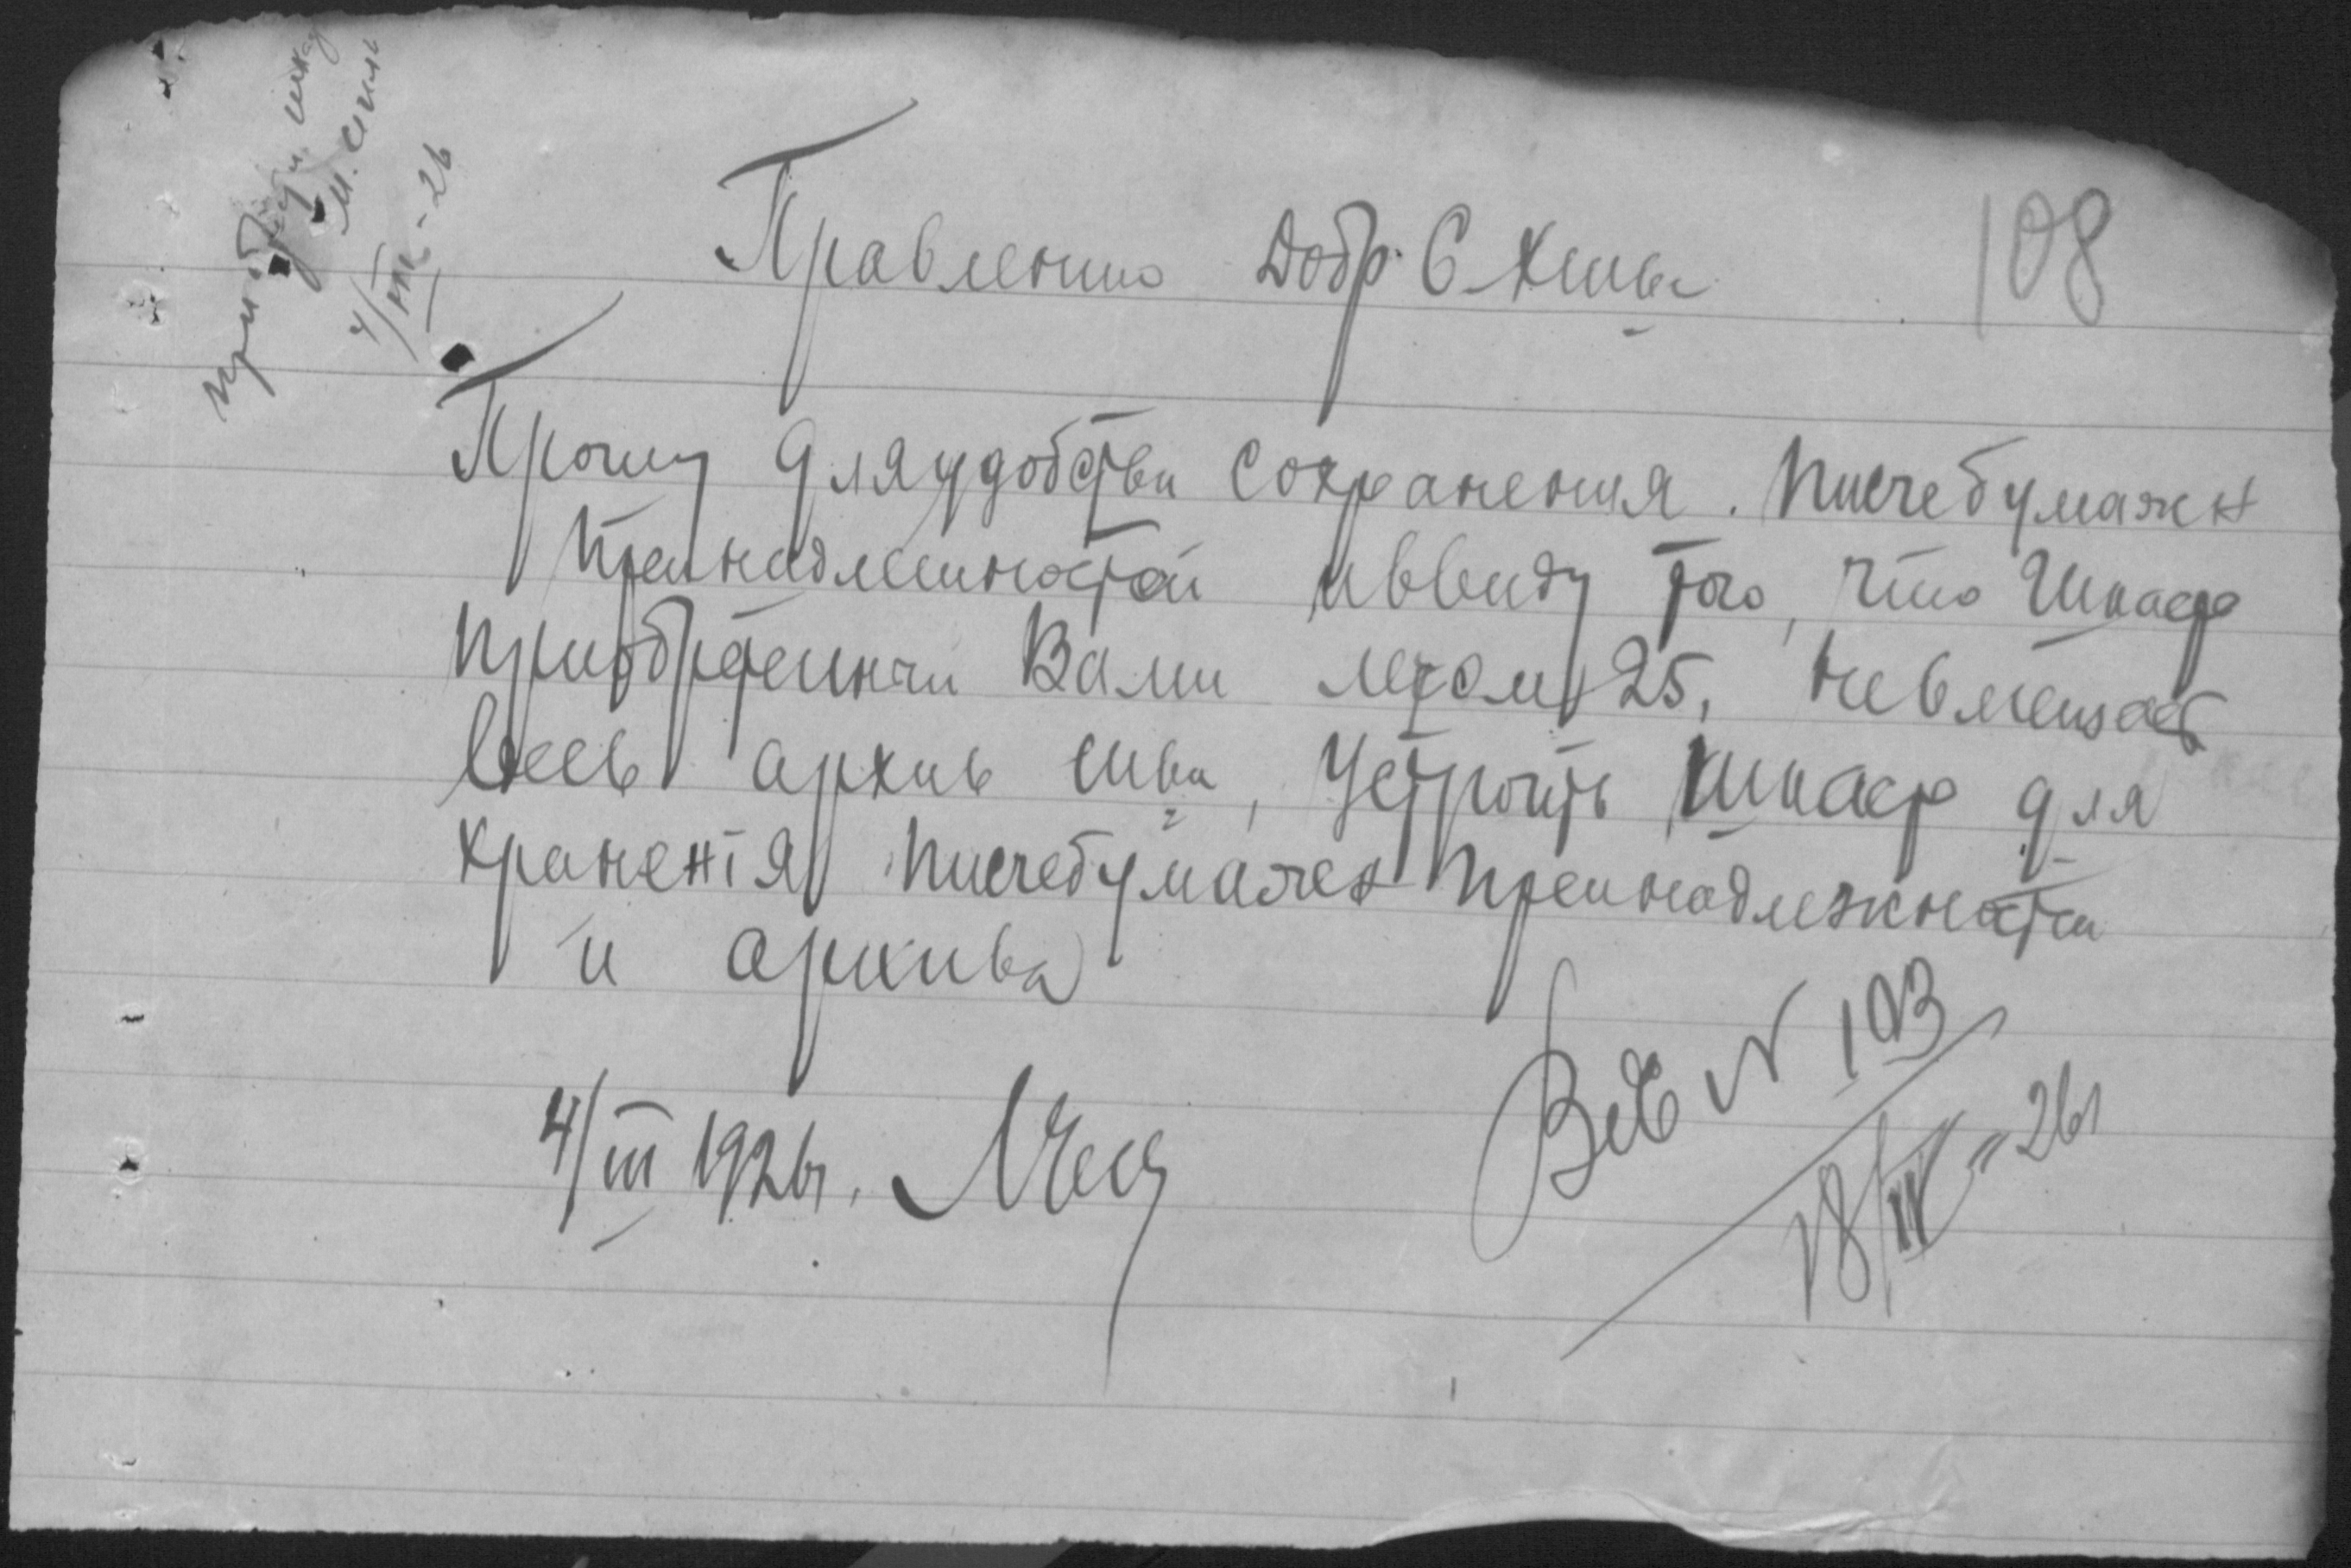 108
Правлению Добр. С Хшва
Прошу для удобства сохранения. Писчебумажн
Пренадлежностей и ввиду того, что Шкаф
приобретенный Вами летом 25, не вмещает
весь архив шва, устроить шкаф для
храненія писчебумажн пренадлежности
и архива
4/III 1926г.
№ 103
18/IV - 26г